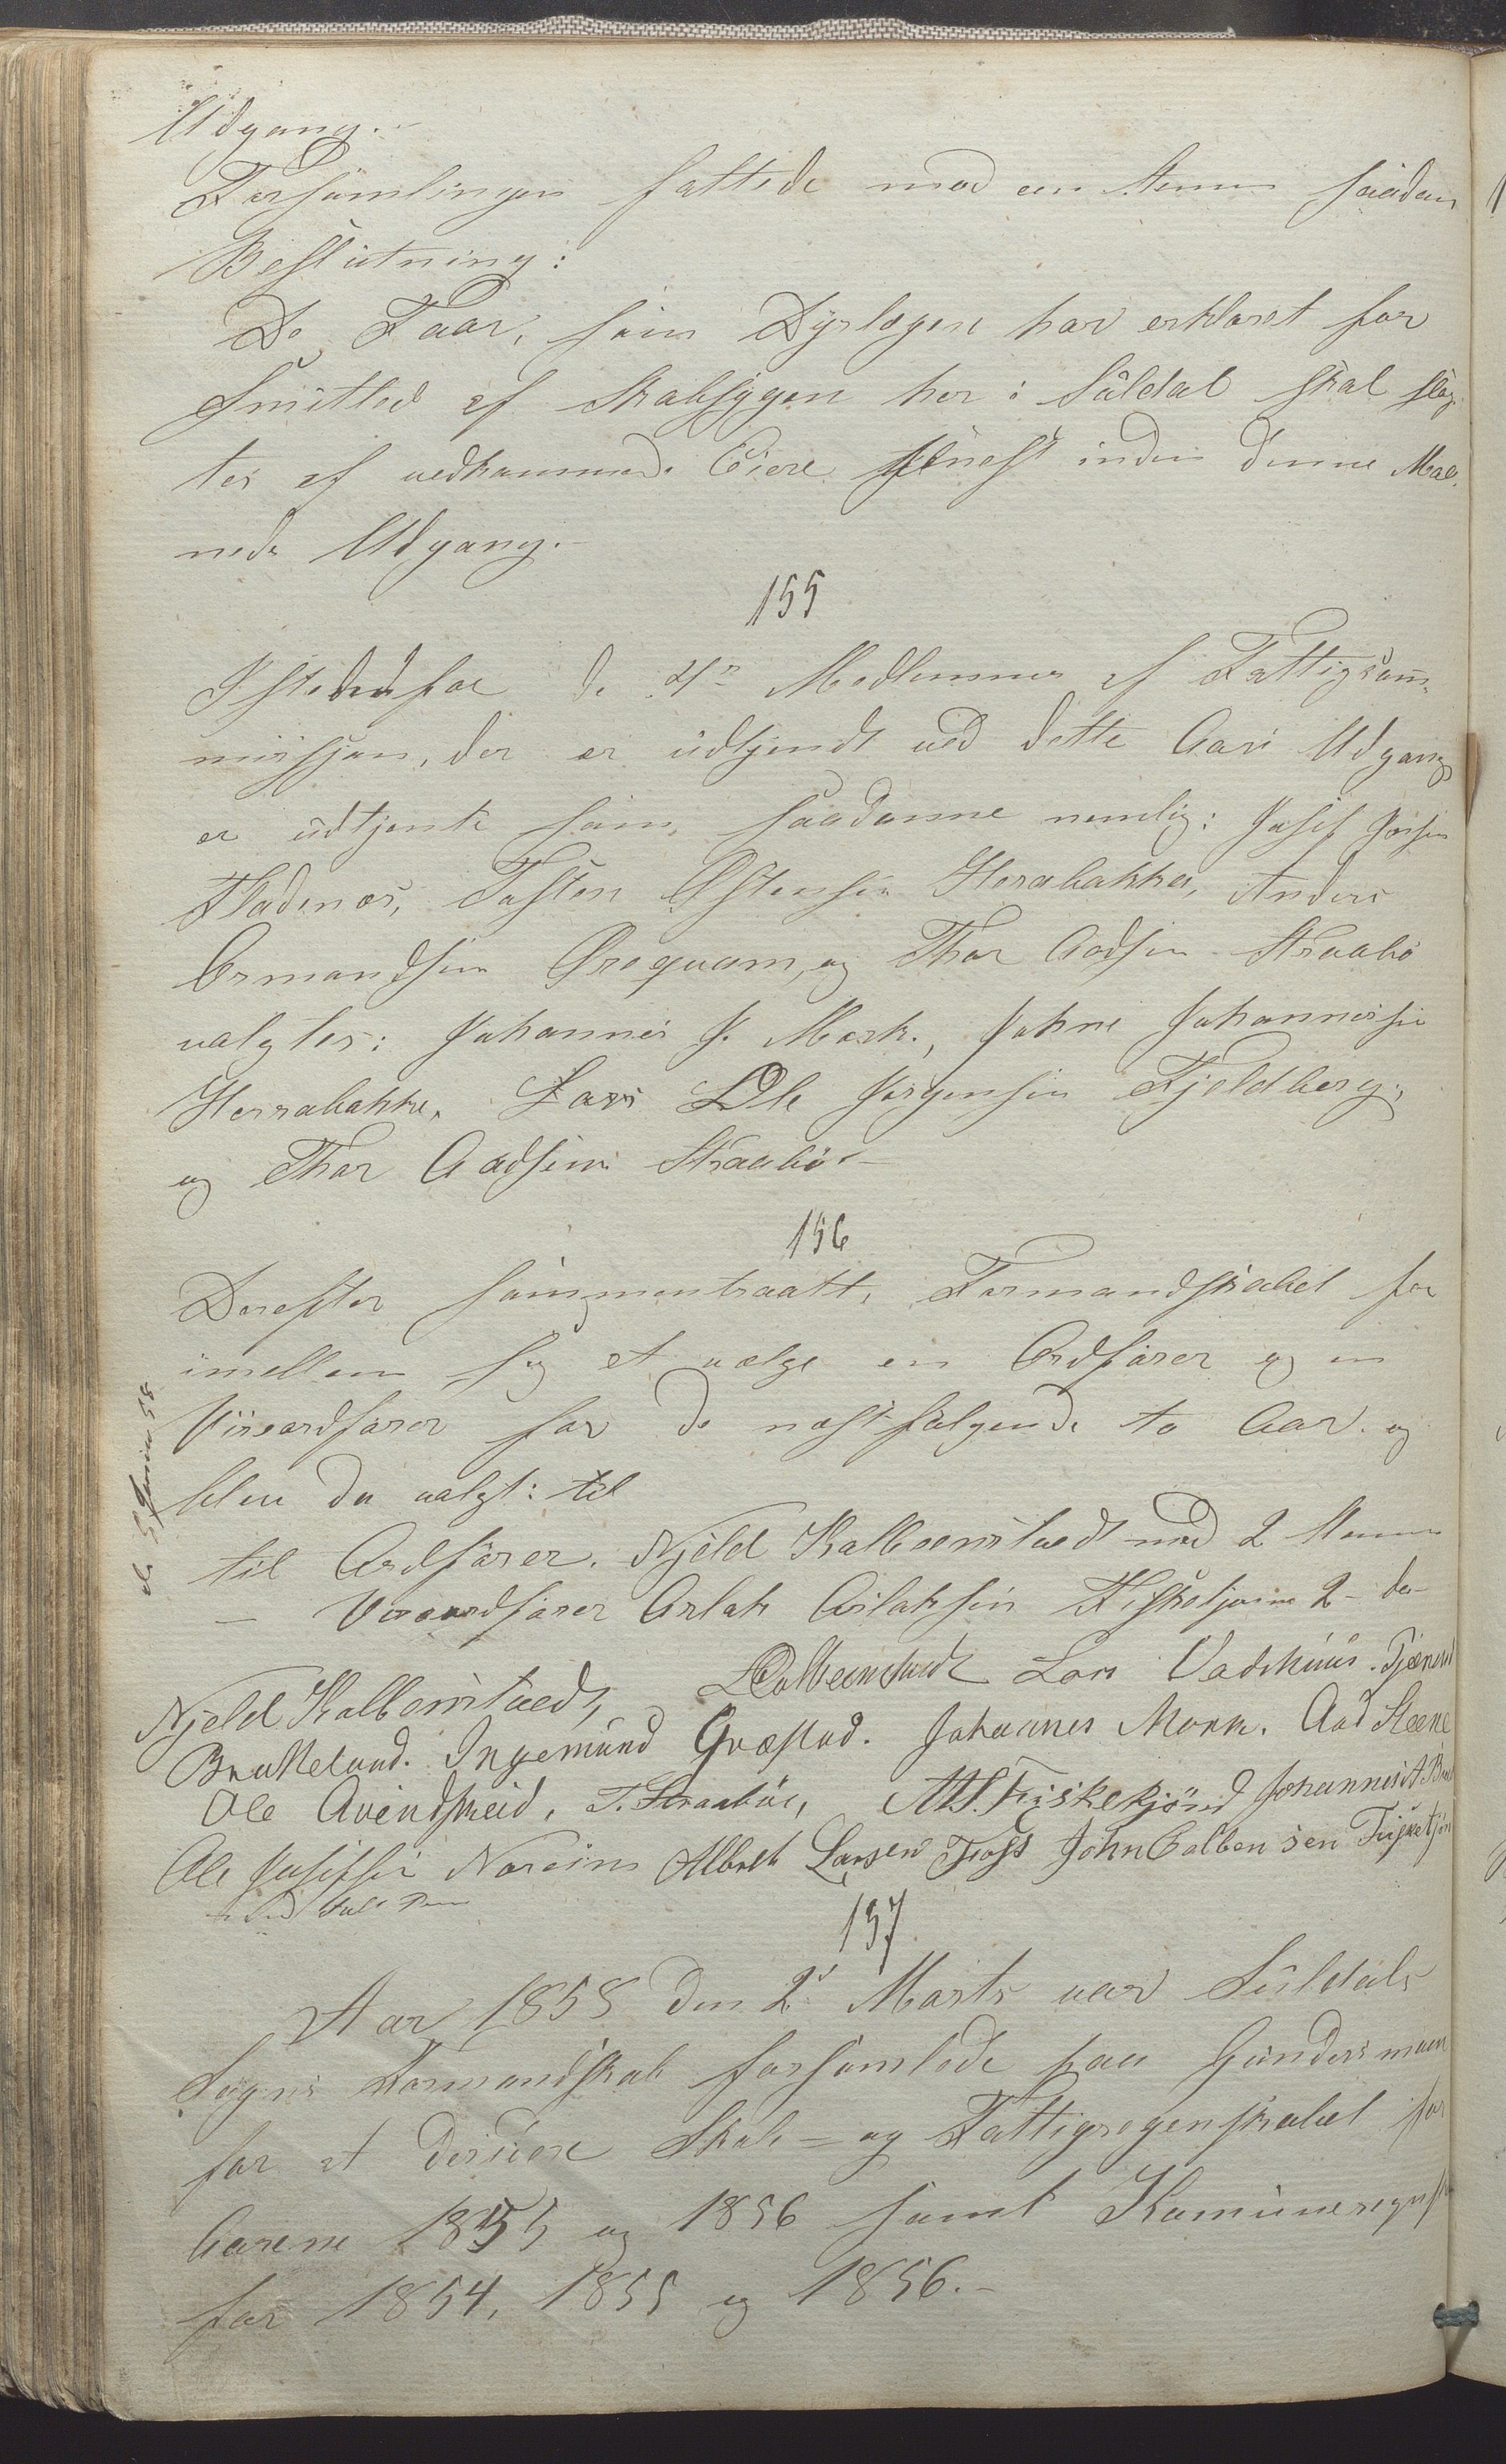 Udgang.-
Forsamlingen fattede mod een Stemme saadan
Beslutning:
De Faar, som Dyrlægen har erklæret for
Smitted af Skabsygen her i Suldal skal slag-
tes af vedkommende Eiere senest inden denne Maa-
neds Udgang.-
155
Istedetfor de 4re Medlemmer af Fattigkom-
missjon, der er udtjendt ved dette Aars Udgang
er udtjente som saadanne nemlig: Josef
Fladenæs, Tosten Østensen Herabakka, Anders
Ormundsen Øreqvam, og Thor Aadsen Straabø
valgtes: Johannes J. Mork., Johne Johannessen
Herrabakke, Lars Ole Jørgensen Fjeldberg,
og Thor Aadsen Straabø.-
156
Derefter sammentraatte Formandskabet for
imellem sig at vælge en Ordfører og en
Viseordfører for de næstfølgende to Aar. og
blev da valgt: til
til Ordfører. Njeld Kalbeinstvedt med 2 Stemmer
- Viseordfører Aslak Aslaksen Fisketjønn 2 - do-
Njeld Kolbeinstvedt, Kolbeinstvedt Lars Vadshuus. Fjæren
Bratteland. Ingemund Qvæstad. Johannes Mork. Aad Steene
Ole Qvendskeid, T. Straabøe, A. A. S. Fiskekjønd Johannes A B
Ole Josefsen Noreim Albrekt Larsen Foss John Colbensen Fisketjøn
157
Aar 1858 den 2den Marts var Suldals
Sogns Formandskab forsamlede paa Gundersmoen
for at desidere Skole- og Fattigregenskabet for
Aarene 1855 og 1856 samt Komuneregnsk
for 1854, 1855 og 1856.-